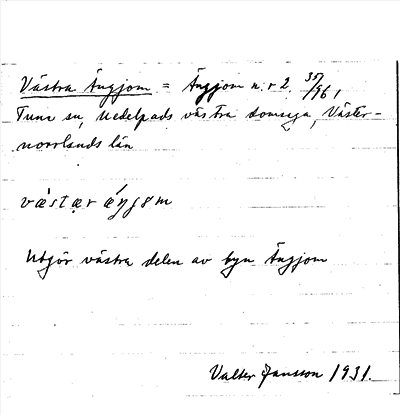 Västra Ängjom = Ängjom n:r 2. 35/96,
Tuna sn, Medelpads västra domsaga, Väster-
norrlands län
væ̀stær ǽŋjɷm
Utgör västra delen av byn Ängjom
Valter Jansson 1931.